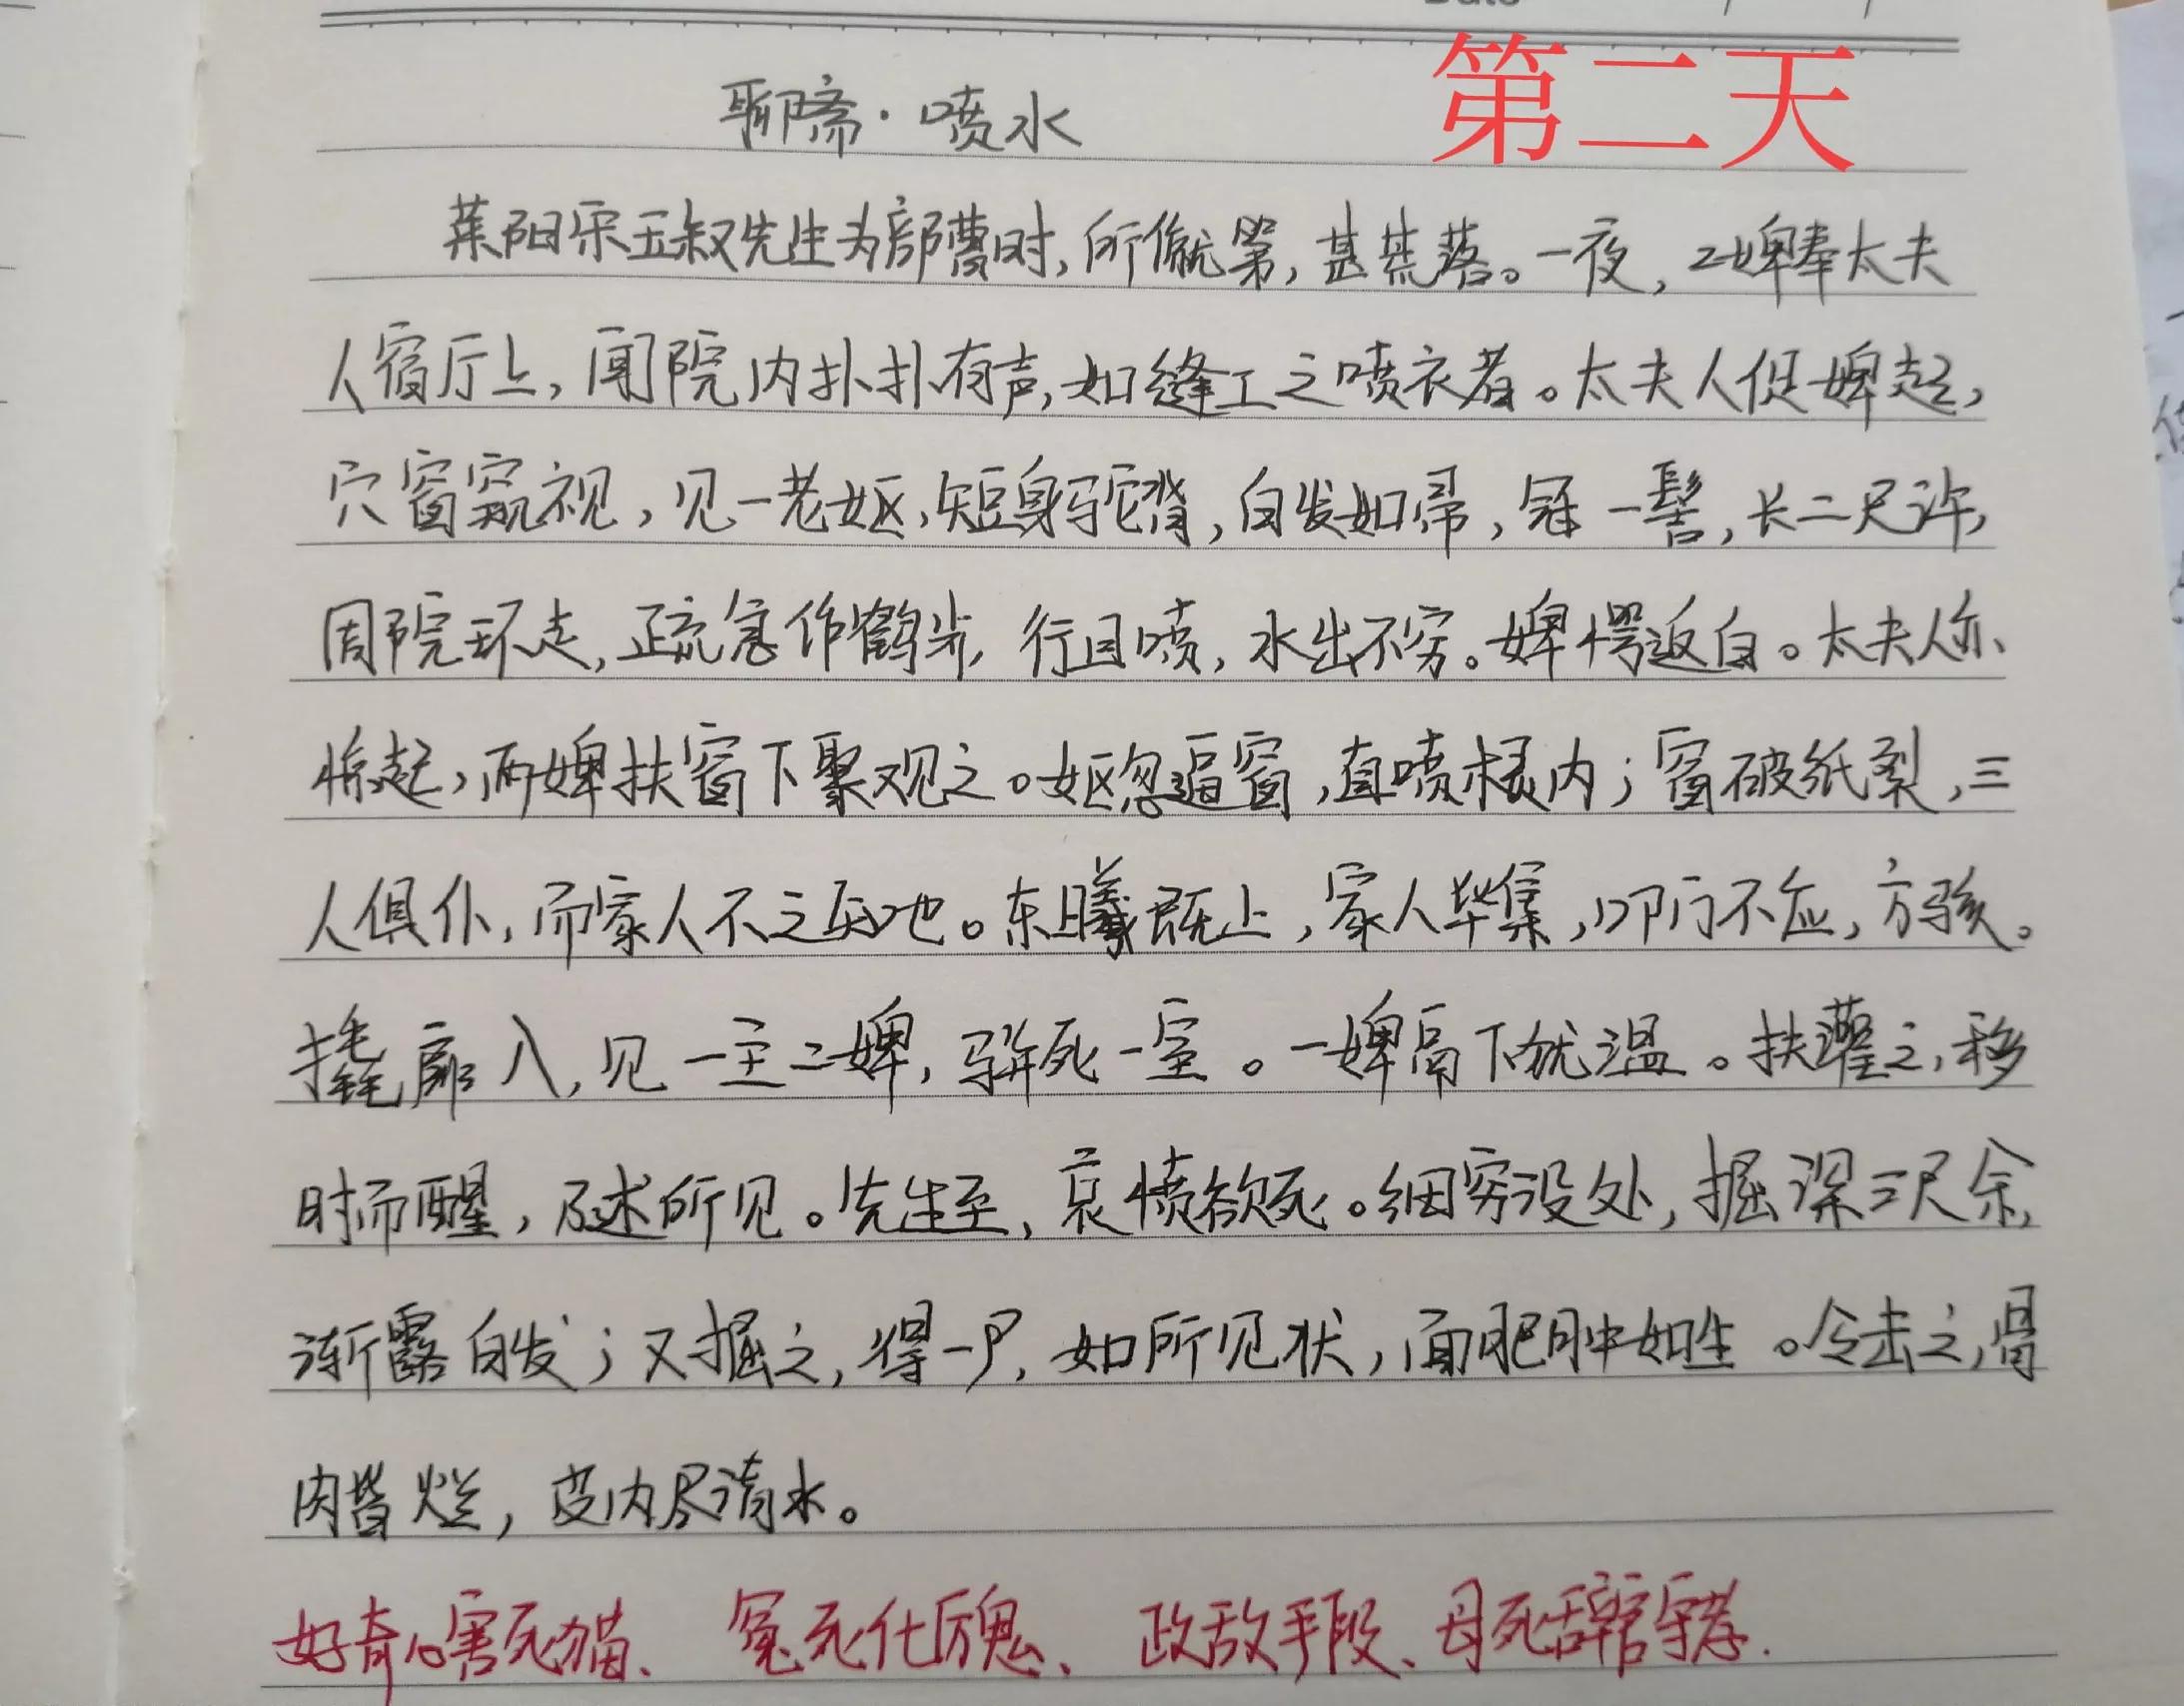 Date / /
第二天
聊斋·喷水
莱阳宋玉叔先生为部曹时,所僦第,甚荒落。一夜,二婢奉太夫
人宿厅上,闻院内扑扑有声,如缝工之喷衣者。太夫人促婢起,
穴窗窥视,见一老妪,短身驼背,白发如帚,冠一髻,长二尺许,
周院环走,疏急作鹤步,行且喷,水出不穷。婢愕返白。太夫人亦
惊起,两婢扶窗下聚观之。妪忽逼窗,直喷棂内;窗破纸裂,三
人俱仆,而家人不之知也。东曦既上,家人毕集,叩门不应,方骇。
撬扉入,见一主二婢,骈死一室。一婢鬲下犹温。扶灌之,移
时而醒,乃述所见。先生至,哀愤欲死。细穷没处,掘深三尺余,
渐露白发;又掘之,得一尸,如所见状,面肥肿如生。令击之,骨
肉皆烂,皮内尽清水。
好奇心害死猫、冤死化厉鬼、政敌手段、母死辞官守孝.